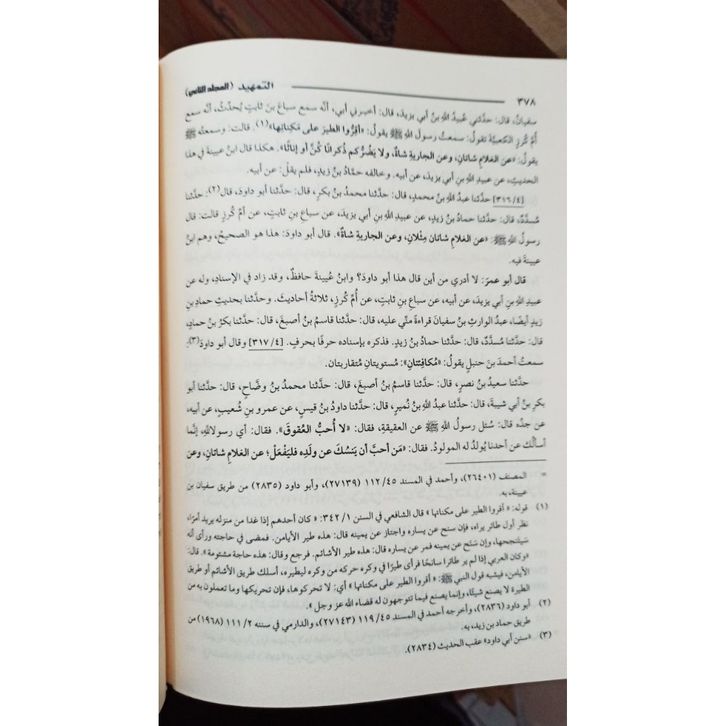 ٣٧٨ التمهيد (المجلد الثاني)
سفيانُ، قال: حدَّثني عُبيدُ اللهِ بنُ أبي يزيدَ، قال: أخبرني أبي، أنَّه سمع سباعَ بنَ ثابتٍ يُحدِّثُ، أنَّه سمع
أُمَّ كُرْزٍ الكعبيَّةَ تقولُ: سمعتُ رسولَ اللهِ ﷺ يقولُ: «أقِرُّوا الطيرَ على مَكِناتِها»(١). قالت: وسمعتُه ﷺ
يقولُ: «عن الغلامِ شاتانِ، وعن الجاريةِ شاةٌ، ولا يَضُرُّكم ذُكرانًا كُنَّ أو إناثًا». هكذا قال ابنُ عيينةَ في هذا
الحديثِ، عن عبيدِ اللهِ بنِ أبي يزيدَ، عن أبيه. وخالفه حمَّادُ بنُ زيدٍ، فلم يقلْ: عن أبيه.
[٣١٦/٤] حدَّثنا عبدُ اللهِ بنُ محمدٍ، قال: حدَّثنا محمدُ بنُ بكرٍ، قال: حدَّثنا أبو داودَ، قال(٢): حدَّثنا
مُسدَّدٌ، قال: حدَّثنا حمادُ بنُ زيدٍ، عن عبيدِ اللهِ بنِ أبي يزيدَ، عن سباعِ بنِ ثابتٍ، عن أُمِّ كُرْزٍ قالت: قال
رسولُ اللهِ ﷺ: «عن الغلامِ شاتان مِثْلان، وعن الجاريةِ شاةٌ». قال أبو داودَ: هذا هو الصحيحُ، وهم ابنُ
عيينةَ فيه.
قال أبو عمرَ: لا أدري من أين قال هذا أبو داودَ؟ وابنُ عُيينةَ حافظٌ، وقد زاد في الإسنادِ، وله عن
عبيدِ اللهِ بنِ أبي يزيدَ، عن أبيه، عن سباعِ بنِ ثابتٍ، عن أُمِّ كُرزٍ، ثلاثةُ أحاديثَ. وحدَّثنا بحديثِ حمادِ بنِ
زيدٍ أيضًا، عبدُ الوارثِ بنُ سفيانَ قراءةً منِّي عليه، قال: حدَّثنا قاسمُ بنُ أصبغَ، قال: حدَّثنا بكرُ بنُ حمادٍ،
قال: حدَّثنا مُسدَّدٌ، قال: حدَّثنا حمادُ بنُ زيدٍ. فذكره بإسنادِه حرفًا بحرفٍ. [٣١٧/٤] وقال أبو داودَ(٣):
سمعتُ أحمدَ بنَ حنبلٍ يقولُ: «مُكافِئتانِ»: مُستويتانِ مُتقاربتان.
حدَّثنا سعيدُ بنُ نصرٍ، قال: حدَّثنا قاسمُ بنُ أصبغَ، قال: حدَّثنا محمدُ بنُ وضَّاحٍ، قال: حدَّثنا أبو
بكرِ بنُ أبي شيبةَ، قال: حدَّثنا عبدُ اللهِ بنُ نُميرٍ، قال: حدَّثنا داودُ بنُ قيسٍ، عن عمرِو بنِ شُعيبٍ، عن أبيه،
عن جدِّه قال: سُئل رسولُ اللهِ ﷺ عن العقيقةِ، فقال: «لا أُحبُّ العُقوقَ». فقال: أي رسولَاللهِ، إنَّما
أسألُك عن أحدِنا يُولدُ له المولودُ. فقال: «مَن أحبَّ أن يَنسُكَ عن ولدِه فليَفْعَلْ؛ عن الغلامِ شاتانِ، وعن
= المصنف (٢٦٤٠١)، وأحمد في المسند ١١٢/٤٥ (٢٧١٣٩)، وأبو داود (٢٨٣٥) من طريق سفيان بن
عيينة، به.
(١) قوله: "أقروا الطير على مكناتها" قال الشافعي في السنن ٣٤٢/١: "كان أحدهم إذا غدا من منزله يريد أمرًا،
نظر أول طائر يراه، فإن سنح عن يساره واجتاز عن يمينه قال: هذه طير الأيامن. فمضى في حاجته ورأى أنه
سيَنتجحها، وإن سنح عن يمينه فمر عن يساره قال: هذه طير الأشائم. فرجع وقال: هذه حاجة مشئومة". قال:
"وكان العربي إذا لم ير طائرا سانحا فرأى طيرًا في وكره حركه من وكره ليطيره، أسلك طريق الأشائم أو طريق
الأيامن، فيشبه قول النبي ﷺ: "أقروا الطير على مكناتها" أي: لا تحركوها، فإن تحريكها وما تعملون به من
الطيرة لا يصنع شيئًا، وإنما يصنع فيما تتوجهون له قضاء الله عز وجل".
(٢) أبو داود (٢٨٣٦)، وأخرجه أحمد في المسند ١١٩/٤٥ (٢٧١٤٣)، والدارمي في سننه ١١١/٢ (١٩٦٨) من
طريق حماد بن زيد، به.
(٣) «سنن أبي داود» عقب الحديث (٢٨٣٤).